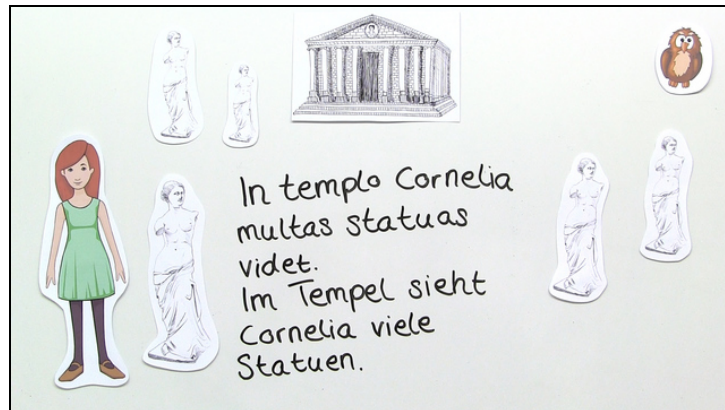 In templo Cornelia
multas statuas
videt.
Im Tempel sieht
Cornelia viele
Statuen.